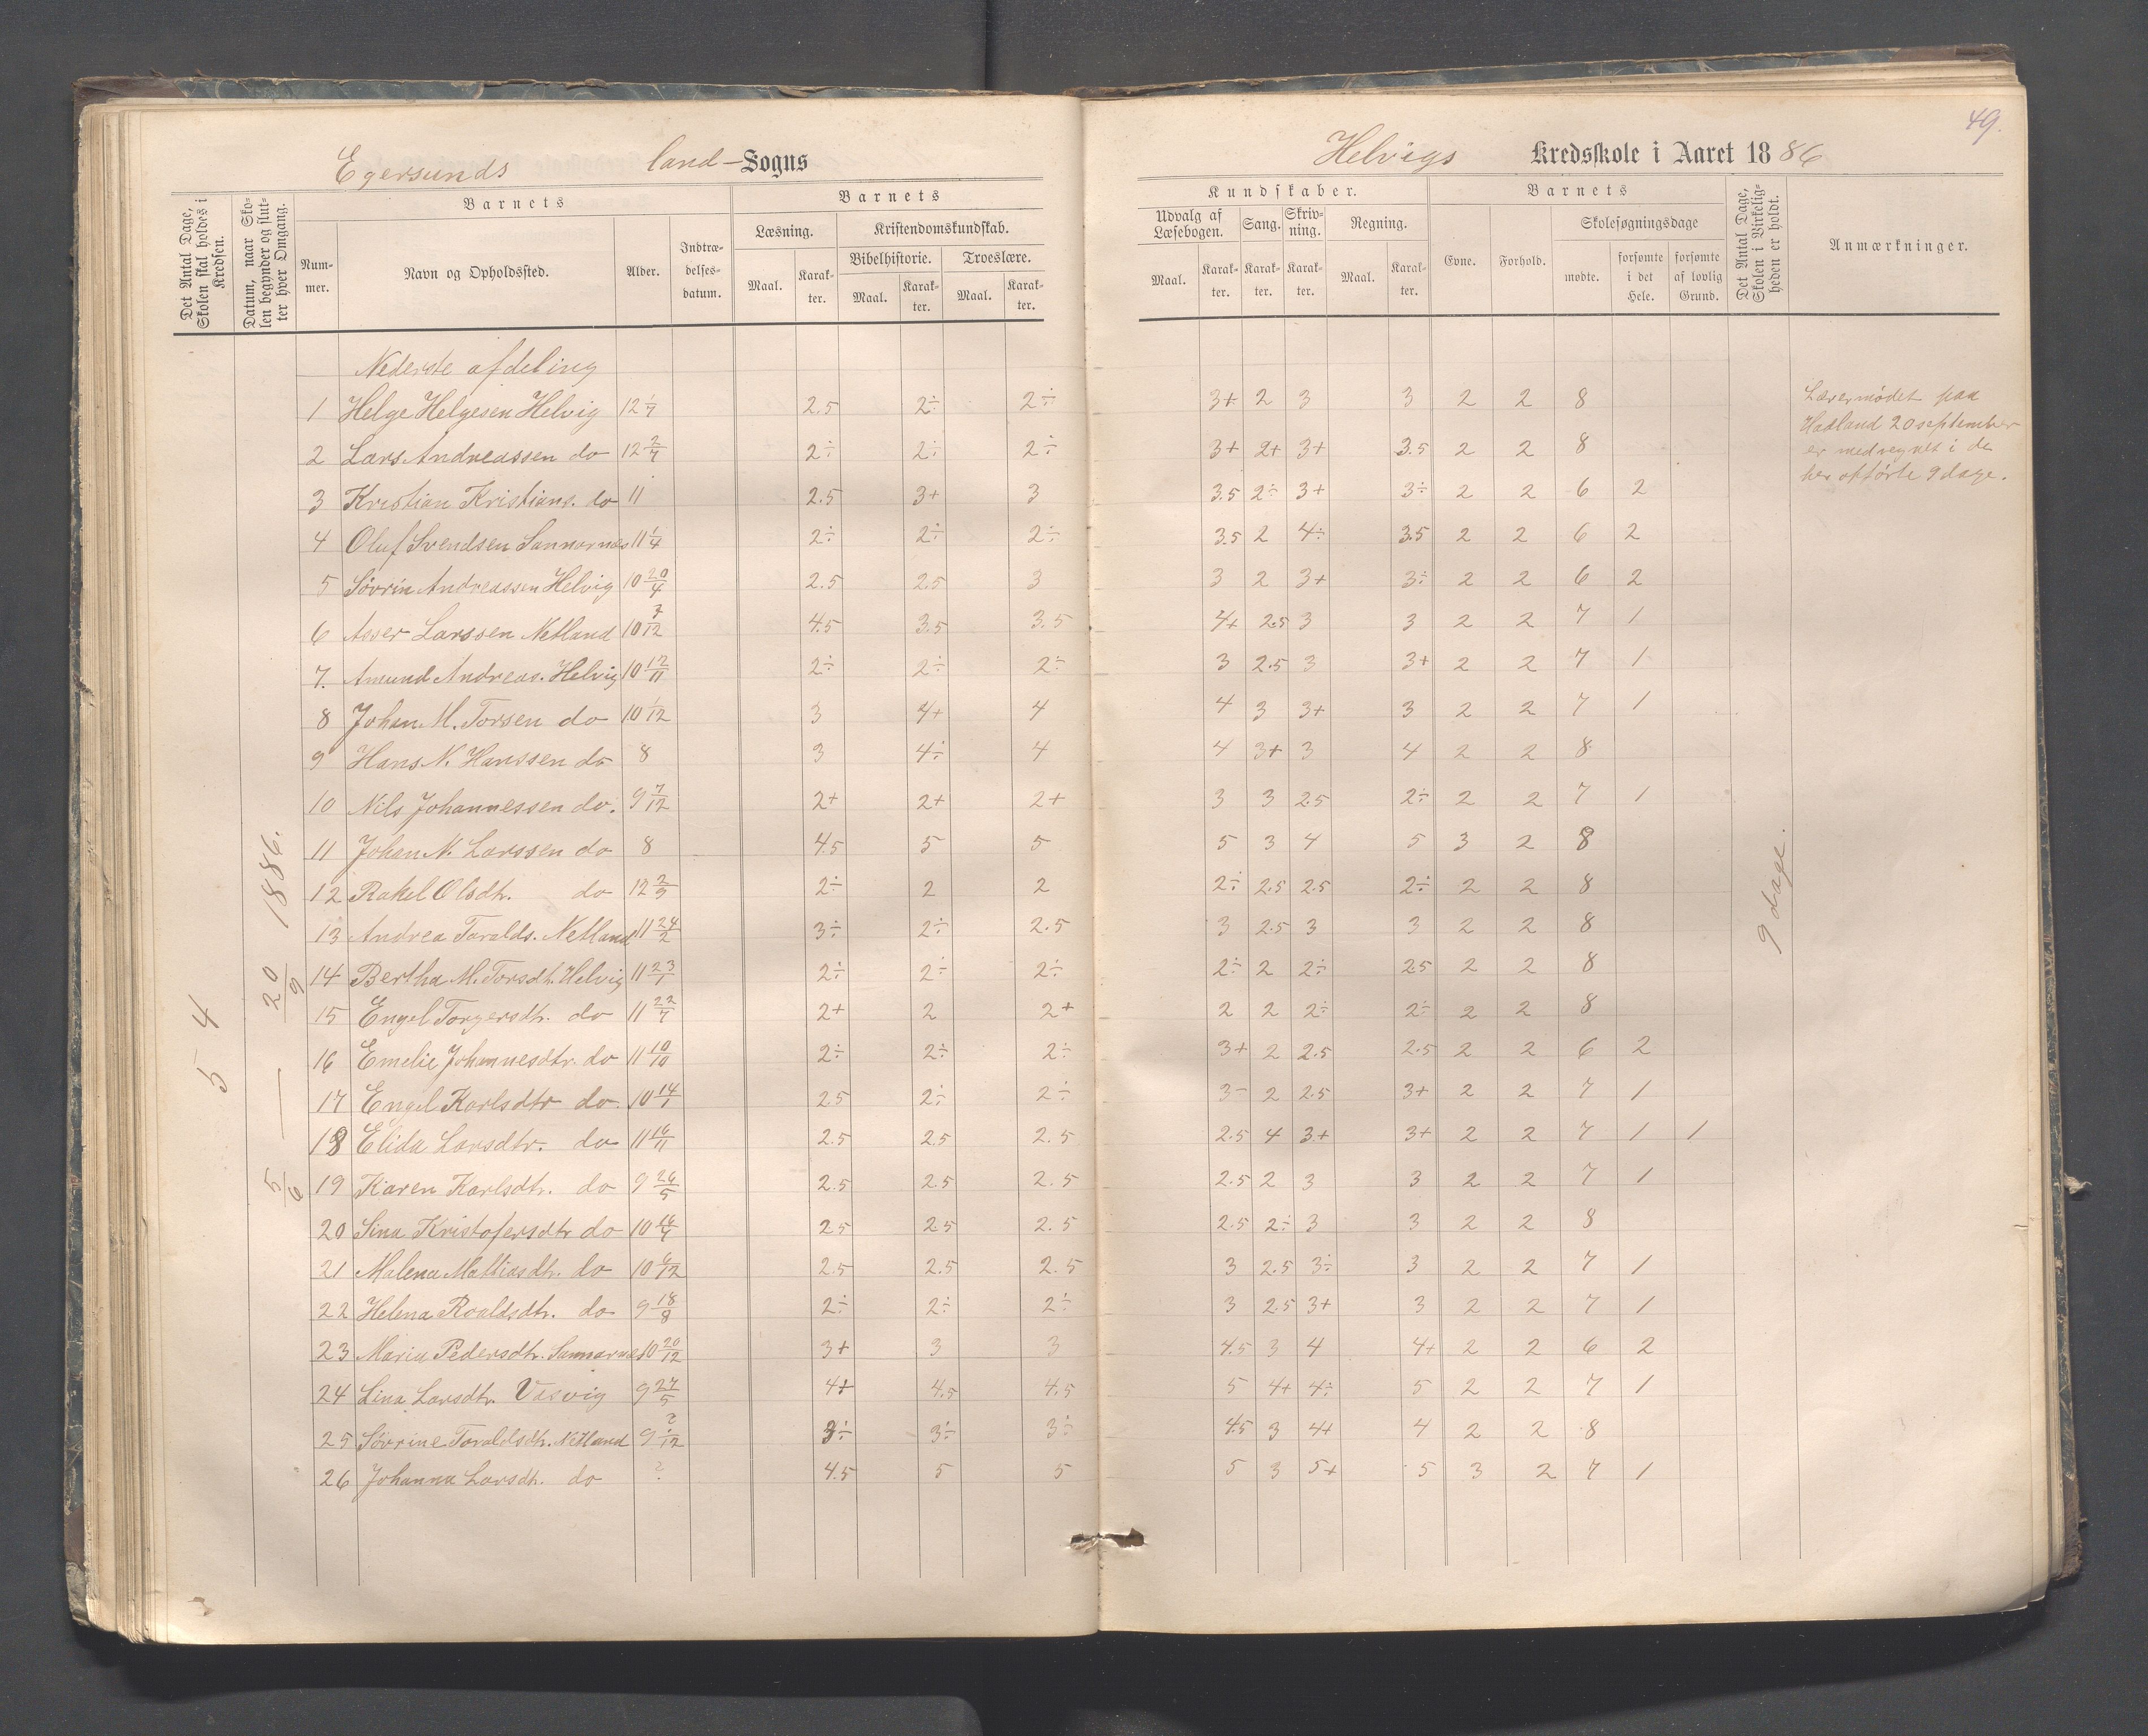 49.
Egersunds land-Sogns
Helvigs Kredsskole i Aaret 1886
Det Antal Dage, Skolen skal holdes i Kredsen.
Datum, naar Skolen begynder og slutter hver Omgang.
Barnets
Nummer.
Navn og Opholdssted.
Alder.
Indtrædelsesdatum.
Barnets
Læsning.
Kristendomskundskab.
Bibelhistorie.
Troeslære.
Maal. Karakter. Maal. Karakter. Maal. Karakter.
Kundskaber.
Udvalg af Læsebogen. Sang. Skrivning. Regning.
Maal. Karakter. Karakter. Karakter. Maal. Karakter.
Barnets
Evne. Forhold.
Skolesøgningsdage
mødte. forsømte i det Hele. forsømte af lovlig Grund.
Det Antal Dage, Skolen i Virkeligheden er holdt.
Anmærkninger.
54
5/6 — 20/9 1886.
Nederste afdeling
1 Helge Helgesen Helvig 12 1/7 2.5 2÷ 2÷ 3+ 2 3 3 2 2 8
2 Lars Andreassen do 12 2/7 2÷ 2÷ 2÷ 3+ 2+ 3+ 3.5 2 2 8
3 Kristian Kristians. do 11 2.5 3+ 3 3.5 2÷ 3+ 3÷ 2 2 6 2
4 Oluf Svendsen Sannarnes 11 1/4 2÷ 2÷ 2÷ 3.5 2 4÷ 3.5 2 2 6 2
5 Sövrin Andreassen Helvig 10 20/4 2.5 2.5 3 3 2 3+ 3÷ 2 2 6 2
6 Asser Larssen Netland 10 7/12 4.5 3.5 3.5 4+ 2.5 3 3 2 2 7 1
7. Amund Andreas. Helvig 10 12/11 2÷ 2÷ 2÷ 3 2.5 3 3+ 2 2 7 1
8 Johan M. Torsen do 10 1/12 3 4+ 4 4 3 3+ 3 2 2 7 1
9 Hans N. Hanssen do 8 3 4÷ 4 4 3+ 3 4 2 2 8
10 Nils Johannessen do. 9 7/12 2+ 2+ 2+ 3 3 2.5 2÷ 2 2 7 1
11 Johan N. Larssen do 8 4.5 5 5 5 3 4 5 3 2 8
12 Rakel Olsdtr. do 12 2/9 2÷ 2 2 2÷ 2.5 2.5 2÷ 2 2 8
13 Andrea Taralds. Netland 11 24/2 3÷ 2÷ 2.5 3 2.5 3 3 2 2 8
14 Bertha M. Torsdtr. Helvig 11 23/1 2÷ 2÷ 2÷ 2÷ 2 2÷ 2.5 2 2 8
15 Engel Torgersdtr. do 11 22/7 2+ 2 2+ 2 2 2÷ 2÷ 2 2 8
16 Emelie Johannesdtr. do 11 10/10 2÷ 2÷ 2÷ 3+ 2 2.5 2.5 2 2 6 2
17 Engel Karlsdtr do. 10 14/1 2.5 2÷ 2÷ 3- 2 2.5 3+ 2 2 7 1
18 Elida Larsdtr. do 11 16/11 2.5 2.5 2.5 2.5 4 3+ 3+ 2 2 7 1 1
19 Karen Karlsdtr. do 9 26/5 2.5 2.5 2.5 2.5 2 3 3 2 2 7 1
20 Sina Kristofersdtr do 10 16/4 2.5 2.5 2.5 2.5 2÷ 3 3 2 2 8
21 Malena Mattiasdtr. do 10 6/12 2.5 2.5 2.5 3 2.5 3÷ 3 2 2 7 1
22 Helena Roaldsdtr. do 9 18/8 2÷ 2÷ 2÷ 3 2.5 3+ 3 2 2 7 1
23 Maria Pedersdtr. Sannarnes 10 20/12 3+ 3 3 4.5 3 4 4+ 2 2 6 2
24 Lina Larsdtr. Vasvig 9 27/5 4+ 4.5 4.5 5 4+ 4÷ 5 2 2 7 1
25 Sövrine Taraldsdtr. Netland 9 2/12 3÷ 3÷ 3÷ 4.5 3 4+ 4 2 2 8
26 Johanna Larsdtr. do ? 4.5 5 5 5 3 5+ 5 3 2 7 1
9 dage.
Lærermödet paa
Hadland 20 september
er medregnet i de
her opförte 9 dage.